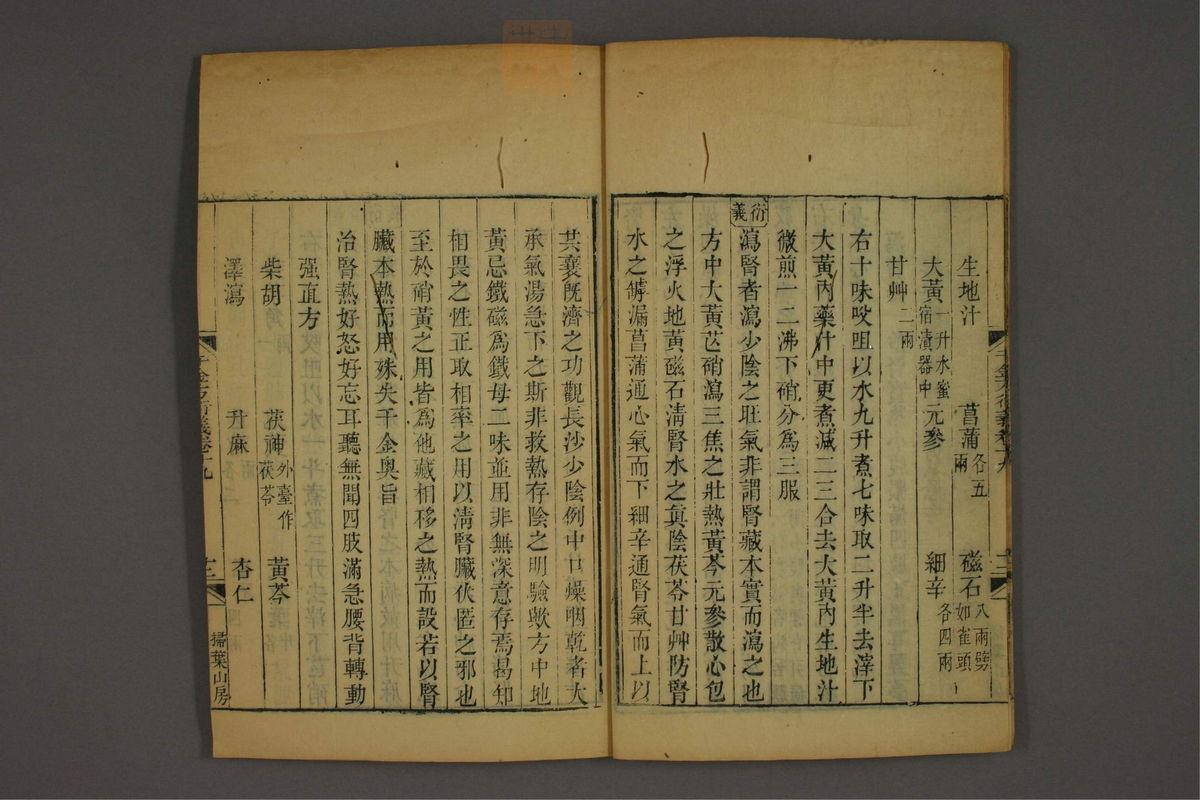 生地汁　菖蒲各五兩　磁石八兩劈如雀頭
大黃一升水蜜宿漬器中　元參　細辛各四兩
甘艸二兩
右十味㕮咀以水九升煮七味取二升半去滓下
大黃內藥汁中更煮減二三合去大黃內生地汁
微煎一二沸下硝分爲三服
衍義
瀉腎者瀉少陰之旺氣非謂腎藏本實而瀉之也
方中大黃芒硝瀉三焦之壯熱黃芩元參散心包
之浮火地黃磁石淸腎水之眞陰茯苓甘艸防腎
水之罅漏菖蒲通心氣而下細辛通腎氣而上以
共襄旣濟之功觀長沙少陰例中口燥咽乾者大
承氣湯急下之斯非救熱存陰之明驗歟方中地
黃忌鐵磁爲鐵母二味並用非無深意存焉曷知
相畏之性正取相率之用以淸腎臟伏匿之邪也
至於硝黃之用皆爲他藏相移之熱而設若以腎
臟本熱而用殊失千金奧旨
治腎熱好怒好忘耳聽無聞四肢滿急腰背轉動
强直方
柴胡　茯神外臺作茯苓　黃芩
澤瀉　升麻　杏仁
千金方衍義卷十九
掃葉山房